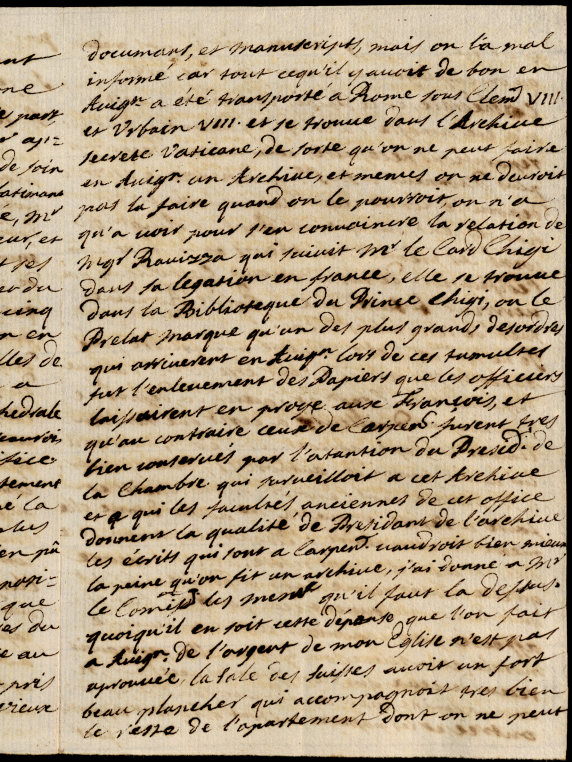 documans, et manuscripts, mais on l'a mal
informé car tout cequ'il y avoit de bon en
Avign. a été transporté a Rome sous Clem. VIII.
et Urbain VIII. et se trouve dans l'Archive
secrete Vaticane, de sorte qu'on ne peut faire
en Avign. un Archive, et memes on ne devroit
pas la faire quand on le pourroit, on n'a
qu'a voir pour s'en convaincre la relation de
Mgr Ravizza qui suivit Mr le Card Chigi
dans sa legation en france, elle se trouve
dans la Biblioteque du Prince Chigi, ou le
Prelat marque qu'un des plus grands desordres
qui arriverent en Avign. lors de ces tumultes
fut l'enlevement des Papiers que les officiers
laisserent en proye aux François, et
qu'au contraire ceux de Carpen. furent tres
bien conservés par l'atantion du Presid. de
la Chambre qui surveilloit a cet Archive
et a qui les facultés anciennes de cet office
donnent la qualité de Presidant de l'archive
les écrits qui sont a Carpen. vaudroit bien mieux
la peine qu'on fit un archive, j'ai donné a Mr
le les qu'il faut la dessus.
quoiqu'il en soit cette dépanse que l'on fait
a Avign. de l'argent de mon Eglise n'est pas
aprouvée, la sale des suisses avoit un fort
beau plancher qui accompagnoit tres bien
le reste de l'apartement dont on ne peut